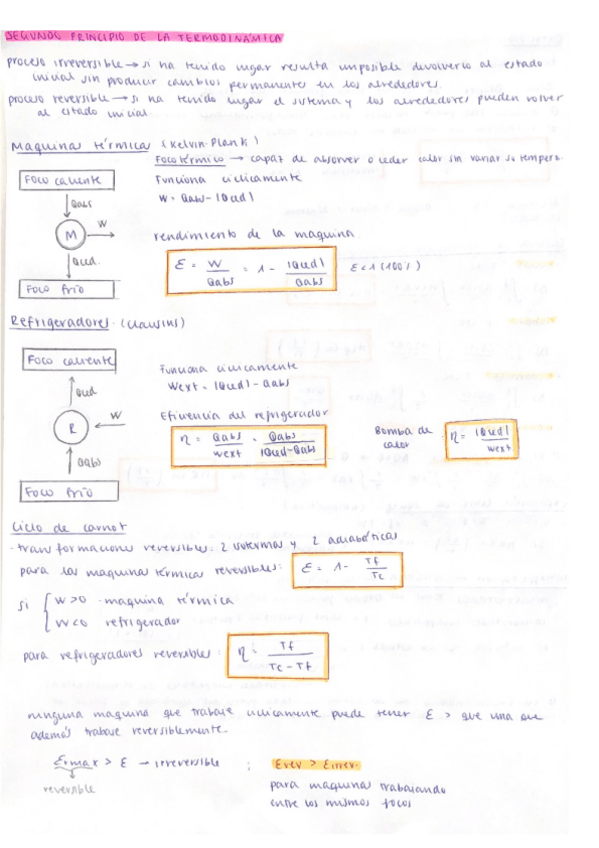 SEGUNDO PRINCIPIO DE LA TERMODINÁMICA
proceso irreversible → si ha tenido lugar resulta imposible devolverlo al estado
inicial sin producir cambios permanentes en los alrededores.
proceso reversible → si ha tenido lugar el sistema y los alrededores pueden volver
al estado inicial
Maquina térmica (Kelvin-Plank)
Foco térmico → capaz de absorver o ceder calor sin variar su tempera.
Foco caliente
Funciona cíclicamente
Qabs
W = Qabs - |Qced|
M
W
rendimiento de la maquina
Qced.
ε = W / Qabs = 1 - |Qced| / Qabs
ε < 1 (100%)
Foco frío
Refrigeradores. (Clausius)
Foco caliente
Funciona cíclicamente
Wext = |Qced| - Qabs
Qced
Eficiencia del refrigerador
R
W
η = Qabs / Wext = Qabs / |Qced|-Qabs
Bomba de
calor
η = |Qced| / Wext
Qabs
Foco frío
Ciclo de carnot
· transformaciones reversibles: 2 isotermas y 2 adiabáticas
para las maquina térmica reversibles:
ε = 1 - Tf / Tc
si
W>0 · maquina térmica
W<0 refrigerador
para refrigeradores reversibles:
η = Tf / Tc - Tf
ninguna maquina que trabaje ciclicamente puede tener ε > que una que
además trabaje reversiblemente.
εrmax > ε → irreversible ; εrev > εirrev.
reversible
para maquinas trabajando
entre los mismos focos